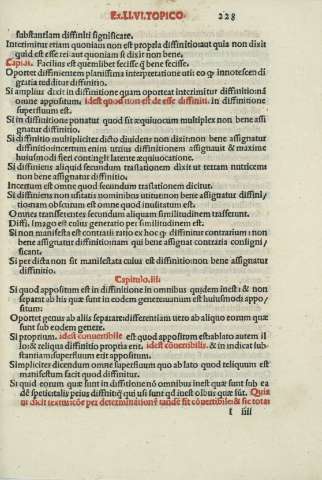 Ex.LI.VI.TOPICO. 228
substantiam diffiniti significare.
Interimitur etiam quoniam non est propria diffinitio: aut quia non dixit
quid est esse rei aut quoniam si dixit non bene.
Capi.ii. Facilius est quemlibet fecisse q̃ bene fecisse.
Oportet diffinientem planissima interpretatione uti eo ꝙ innotescendi
gratia redditur diffinitio.
Si amplius dixit in diffinitione quam oporteat interimitur diffinitio: nã
omne appositum. idest quod non est de esse diffiniti. in diffinitione
superfluum est.
Si in diffinitione ponatur quod sit æquiuocum multiplex non bene assi
gnatur diffinitio.
Si diffinitio multipliciter dicto diuidens non dixit non bene assignatur
diffinitio: incertum enim utrius diffinitionem assignauit & maxime
huiusmodi fieri contingit latente æquiuocatione.
Si diffiniens aliquid secundum traslationem dixit ut terram nutricem
non bene assignatur diffinitio.
Incertum est omne quod secundum traslationem dicitur.
Si diffiniens non usitatis nominibus utitur non bene assignatur diffini/
tio: nam obscurum est omne quod inusitatum est.
Omnes transferentes secundum aliquam similitudinem trasferunt.
Diffi. Imago est cuius generatio per similitudinem est.
Si non manifesta est contrarii ratio ex hoc ꝙ diffinitur contrarium: non
bene assignatur diffinitio: nam qui bene assignat contraria consigni/
ficant.
Si per dicta non sit manifestata cuius est diffinitio non bene assignata est
diffinitio.
Capitulo.iii.
Si quod appositum est in diffinitione in omnibus quidem inest: & non
separat ab his quæ sunt in eodem genere: uanum est huiusmodi appo/
situm:
Oportet genus ab aliis separare: differentiam uero ab aliquo eorum quæ
sunt sub eodem genere.
Si proprium. idest conuertibile est quod appositum est: ablato autem il
lo: & reliqua diffinitio propria erit. idest cõuertibilis. & in indicat sub/
stantiam: superfluum erit appositum.
Simpliciter dicendum omne superfluum quo ablato quod reliquum est
manifestum facit quod diffinitur.
Si quid eorum quæ sunt in diffinitione nõ omnibus inest quæ sunt sub ea
dẽ specie: talis peius diffinit: q̃ qui usi sunt qd inest oibus quæ sũt.
f iiii